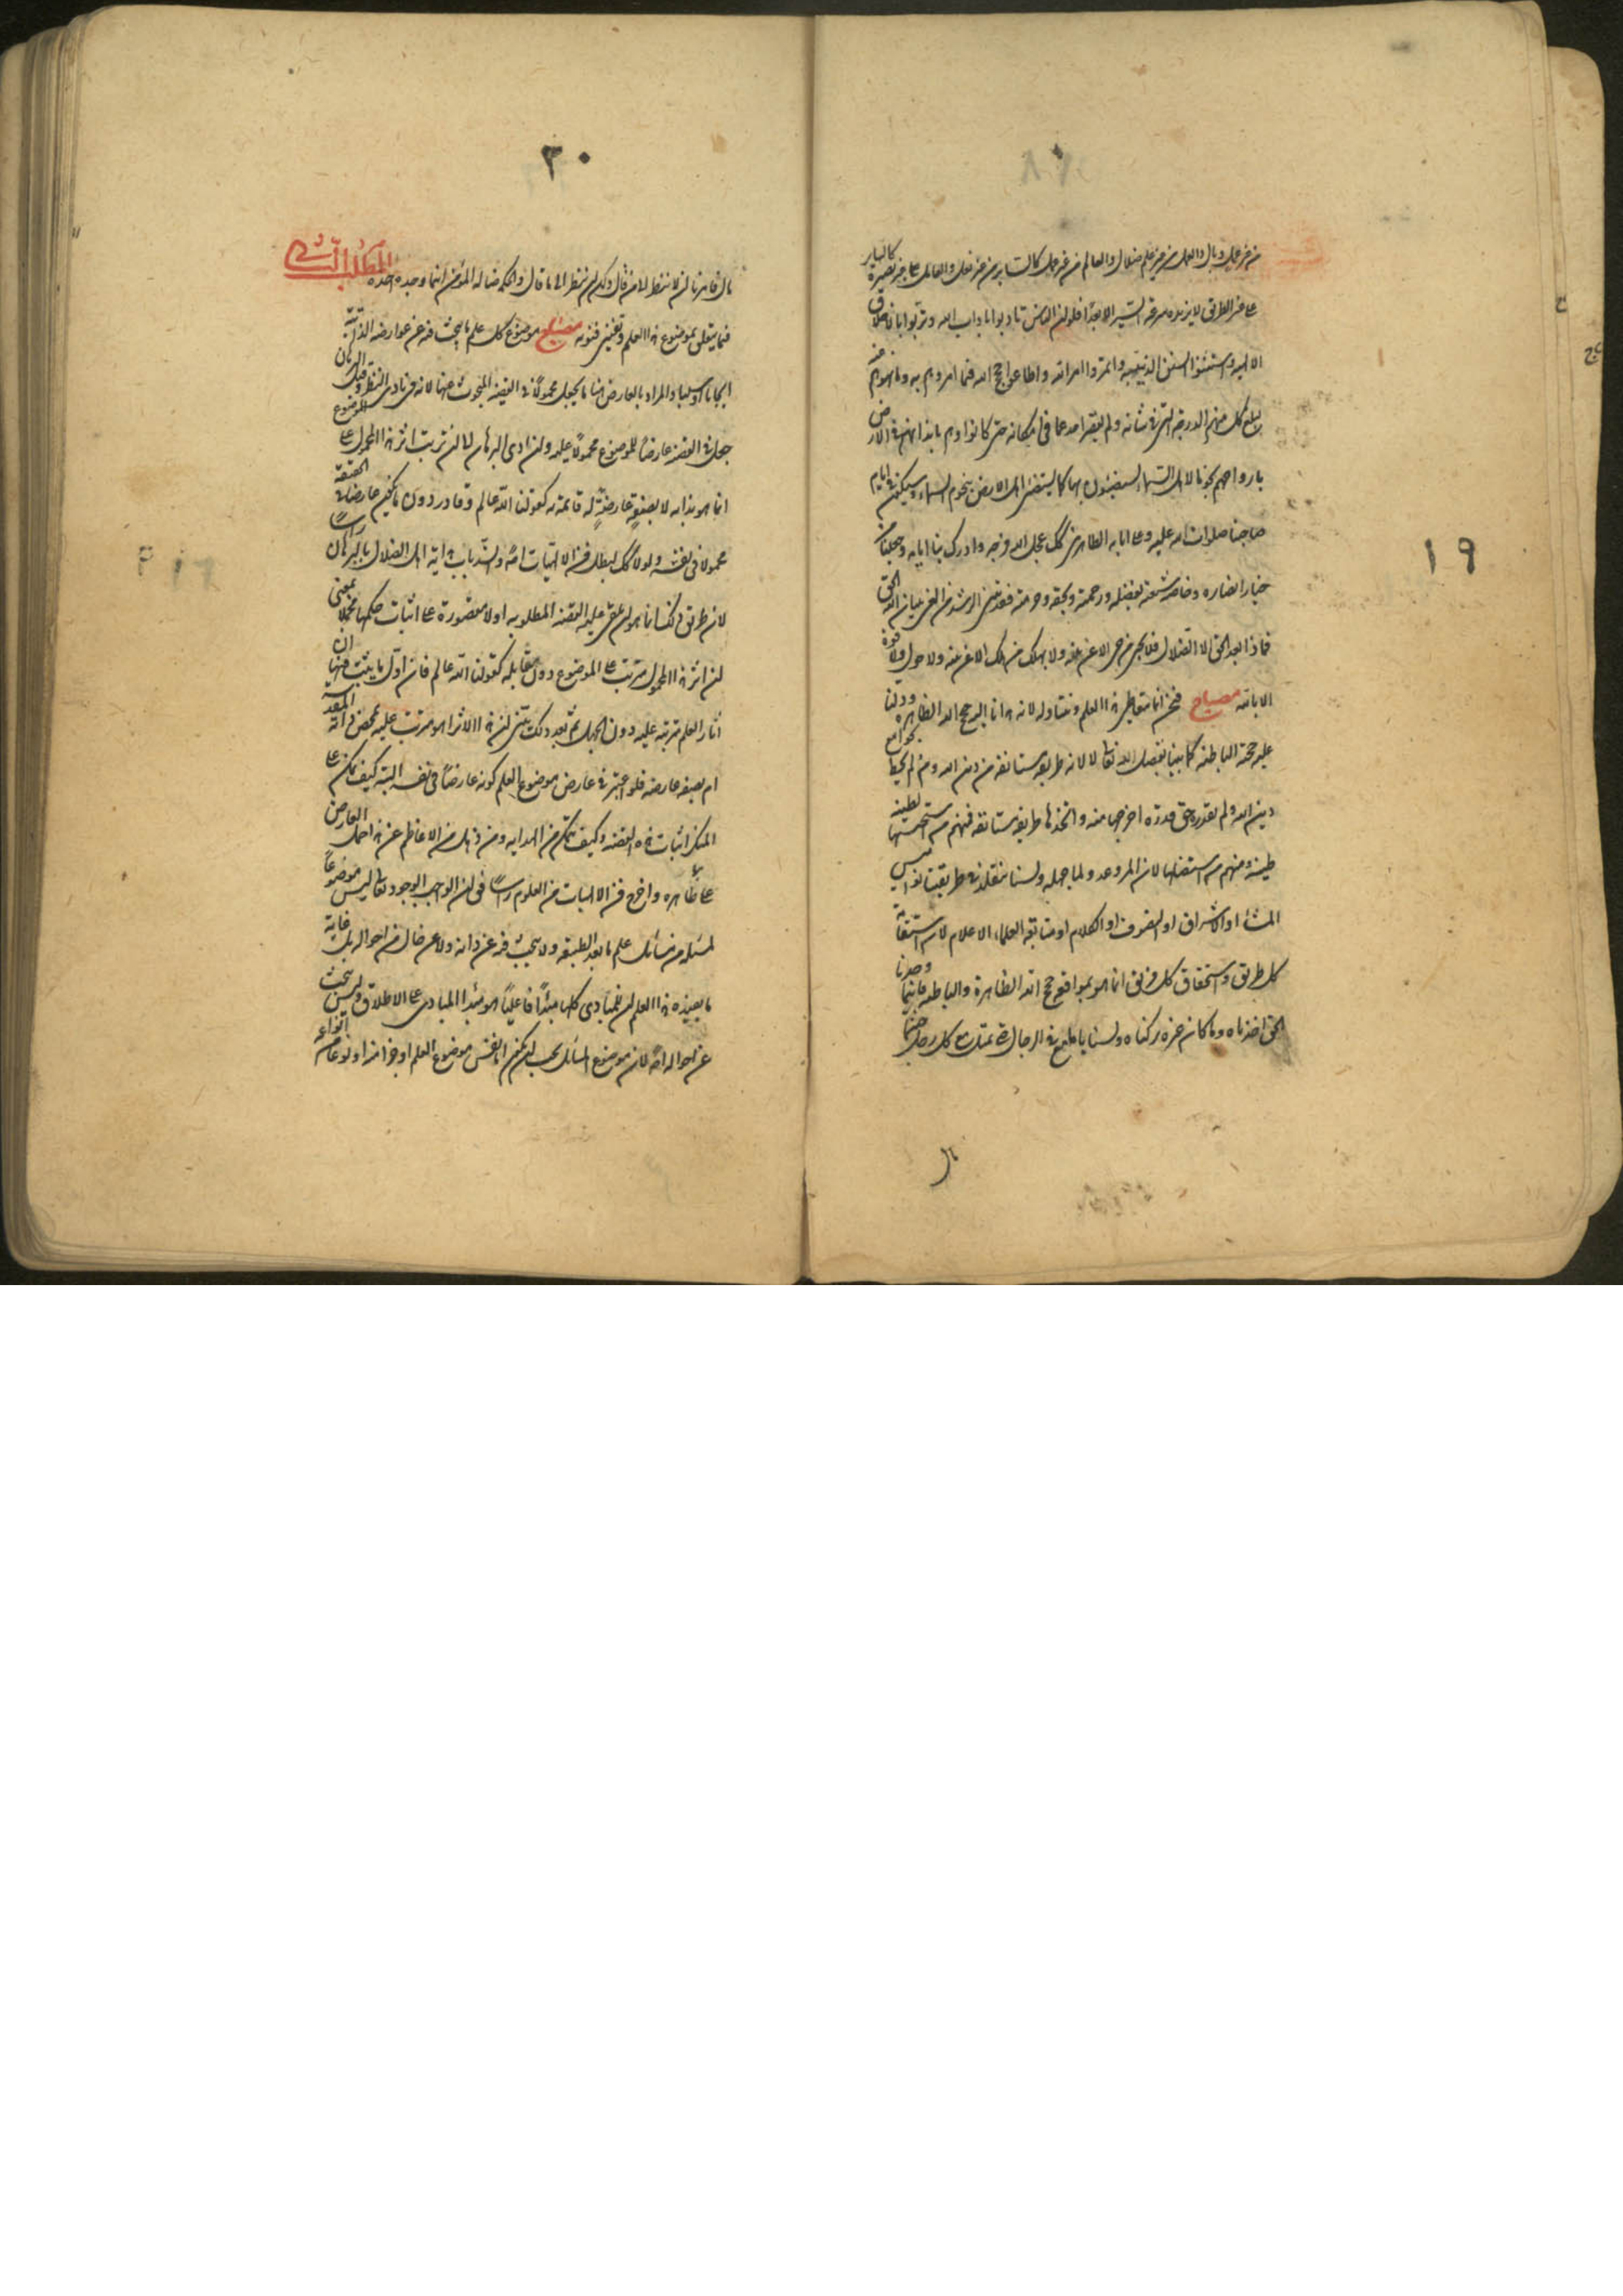 من غير عمل وبال والعمل من غير علم ضلال والعالم من غير عمل كالساير من غير نعل والعامل على غير بصيرة كالساير
على غير الطريق لا يزيده سرعة السير الا بعدا فلو ان الناس تادبوا باداب الله وتربوا باخلاق
الالهية واستسنوا السنن النبوية وائتمروا امر الله واطاعوا حجج الله فيما امروهم به ونهوهم عنه
لبلغ كل منهم الدرجة التي في شانه ولم يبق احد عما في امكانه حتى كانوا وهم بابدانهم في الارض
بارواحهم نجوما لاهل السماء يستضيئون بها كما يستضيء اهل الارض بنجوم السماء وسيكون في ايام
صاحبنا صلوات الله عليه وعلى ابائه الطاهرين كك عجل الله فرجه وادرك بنا ايامه وجعلنا من
خيار انصاره وخاصة شيعته بفضله ورحمته وبحقه وحرمته فقد تبين الرشد من الغي ببيان الحق
فماذا بعد الحق الا الضلال فلا يحيى من حي الا عن بينة ولا يهلك من هلك الا عن بينة ولا حول ولا قوة
الا بالله مصباح فنحن انما نتعاطى هذا العلم ونتناوله لانه هدانا اليه حجج الله الظاهرة ودلنا
عليه حجته الباطنة كما بينا بفضل الله تعالى لا لانه طريقة مستانفة من دين الله ومن لم يحط بجوامع
دين الله ولم يقدره حق قدره اخرجها منه واتخذها طريقة مستانفة فمنهم من استحسنها لطينة
طيبة ومنهم من استقبحها لان المرء عدو لما جهله ولسنا نتقلد في طريقتنا نواميس
المشاء او الاشراق او التصوف او الكلام او متابعة العلماء الاعلام لان استقامة
كل طريق واستحقاق كل فريق انما هو بموافقة حجج الله الظاهرة والباطنة فاينما وجدنا
الحق اخذناه وما كان غيره تركناه ولسنا باطيع في الرجال
قال
١٩
٣٠
قال فامرنا ان لا ننظر الى من قال ولكن ننظر الى ما قال والحكمة ضالة المؤمن اينما وجده اخذه المطلب الثاني
فيما يتعلق بموضوع هذا العلم وتعيين فنونه مصباح موضوع كل علم ما يبحث فيه عن عوارضه الذاتية
ايجابا وسلبا والمراد بالعارض هنا ما يجعل محمولا في القضية المبحوث عنها لانه في بادي النظر وقبل البرهان
جعل في القضية عارضا للموضوع محمولا عليه وان ادى البرهان الى ان ترتب اثر هذا المحمول على الموضوع
انما هو بذاته لا بصفة عارضة له قائمة به كقولنا الله عالم وقادر دون ما يكون عارضا في الحقيقة
محمولا في نفسه ولولا كك لبطل فن الالهيات راسا وانسد باب هداية اهل الضلال بالبرهان
لان طريق ذلك انما هو ان يلقى عليه القضية المطلوبة اولا مقصورة على اثبات حكمها مجملا بمعنى
ان اثر هذا المحمول مترتب على الموضوع دون مقابله كقولنا الله عالم فان اول ما يثبت فيها ان
اثار العلم مترتبة عليه دون الجهل ثم بعد ذلك يتبين ان هذا الاثر اهو مترتب عليه بمحض ذاته المقدسة
ام بصفة عارضة فلو اعتبر في عارض موضوع العلم كونه عارضا في نفسه البتة كيف يمكن على
المنكر اثبات هذه القضية وكيف يتمكن من الهداية ومن ذهل من الاعاظم عن هذا حمل العارض
على ظاهره واخرج فن الالهيات من العلوم راسا فقال ان الواجب الوجود تعالى ليس موضوعا
لمسئلة من مسائل علم ما بعد الطبيعة ولا يبحث فيه عن ذاته ولا عن حال من احواله بل غاية
ما يفيده هذا العلم ان للمبادي كلها مبدأ فاعليا هو مبدأ المبادي على الاطلاق وليس يبحث
عن احواله لان موضوع المسائل يجب ان يكون اما نفس موضوع العلم او جزءا منه او نوعا من انواعه